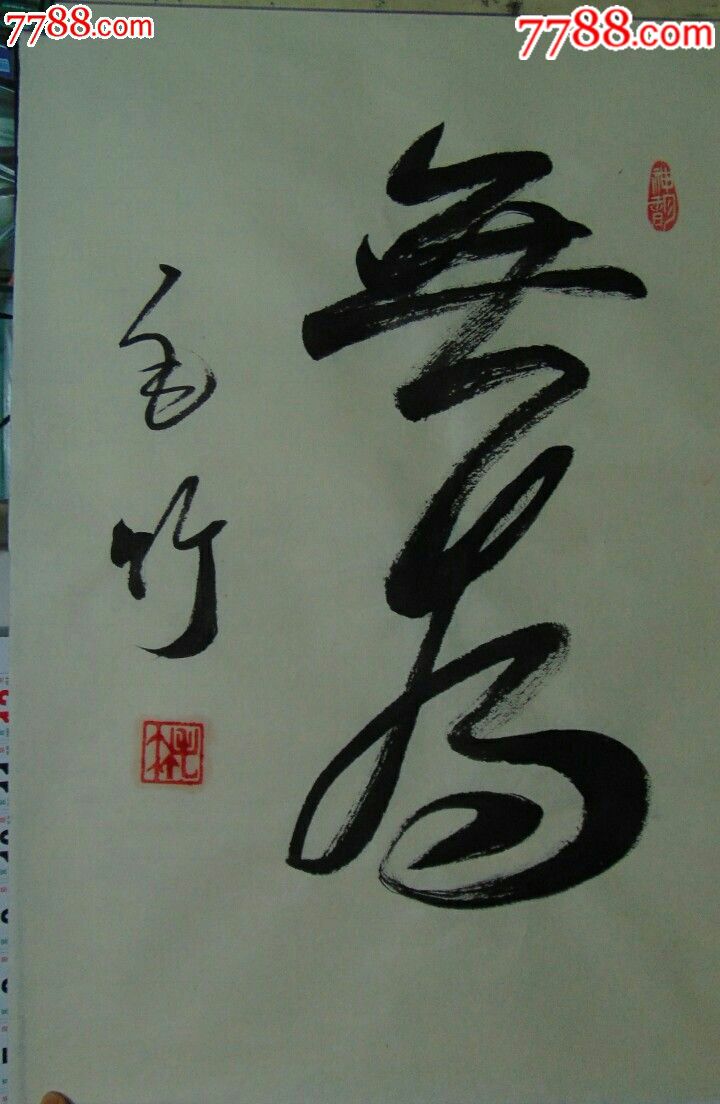 7788.com
7788.com
無為
毛竹